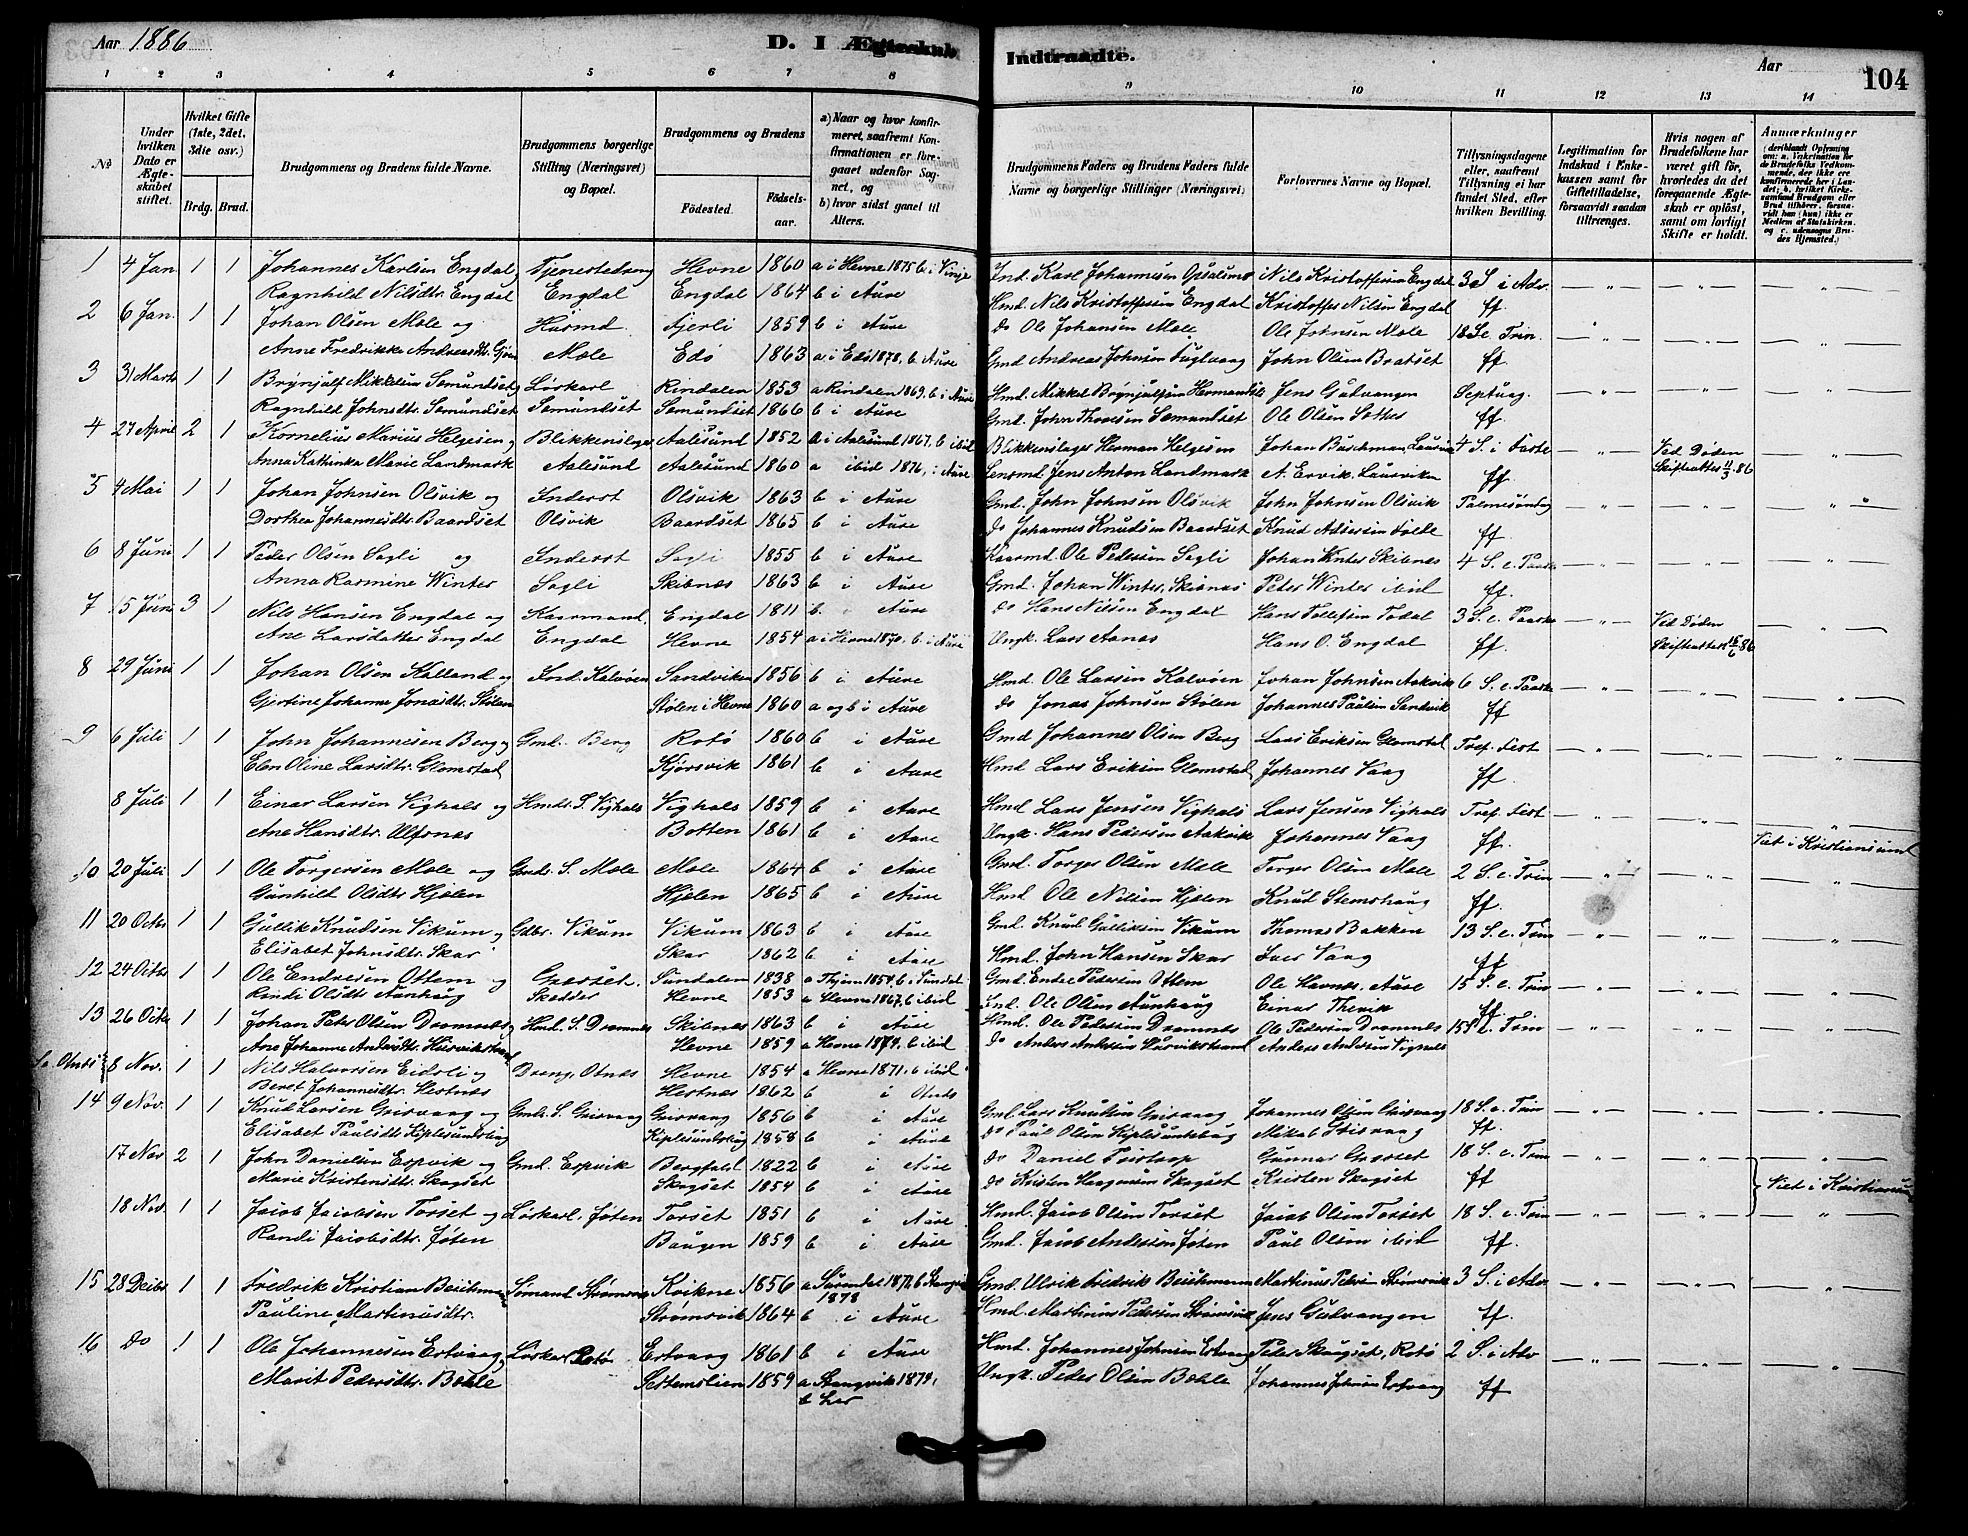 Aar 1886
D. I Ægteskab Indtraadte.
Aar
104
1 2 3 4 5 6 7 8 9 10 11 12 13 14
No
Under hvilken Dato er Ægteskabet stiftet.
Hvilket Gifte (1ste, 2det, 3die osv.)
Brdg. Brud.
Brudgommens og Brudens fulde Navne.
Brudgommens borgerlige Stilling (Næringsvei) og Bopæl.
Brudgommens og Brudens
Fødested. Fødselsaar.
a) Naar og hvor konfirmeret, saafremt Konfirmationen er foregaaet udenfor Sognet, og
b) hvor sidst gaaet til Alters.
Brudgommens Faders og Brudens Faders fulde Navne og borgerlige Stillinger (Næringsvei)
Forlovernes Navne og Bopæl.
Tillysningsdagene eller, saafremt Tillysning ei har fundet Sted, efter hvilken Bevilling.
Legitimation for Indskud i Enkekassen samt for Giftetilladelse, forsaavidt saadan tiltrænges.
Hvis nogen af Brudefolkene har været gift før, hvorledes da det foregaaende Ægteskab er opløst, samt om lovligt Skifte er holdt.
Anmærkninger (deriblandt Oplysning om: a. Vakcination for de Brudefolks Vedkommende, der ikke ere konfirmerede her i Landet; b. hvilket Kirkesamfund Brudgom eller Brud tilhører, forsaavidt han (hun) ikke er Medlem af Statskirken, og c. udensogns Brudes Hjemsted.)
1 4 Jan 1 1 Johannes Karlsen Engdal Tjenestedreng Hevne 1860 a i Hevne 1875 b. i Vinje Ind. Karl Johannesen Nils Kristoffersen Engdal 3 S i Adv. — „ — — „ — — „ —
Ragnhild Nilsdtr. Engdal Engdal Engdal 1864 b i Aure Hmd. Nils Kristoffersen Engdal Kristoffer Nilsen Engdal ff.
2 6 Jan. 1 1 Johan Olsen Mæle og Husmd. 1859 b i Aure do Ole Johansen Mæle Ole Johnsen Mæle 18 S e Trin. — „ — — „ — — „ —
Anne Fredrikke Andreasdtr. Mæle Edø 1863 a i Edø 1878, b. Aure Gmd Andreas Johnsen Fuglvaag John Olsen Bratset ff
3 31 Marts 1 1 Brynjulf Mikkelsen Semundset Løskarl Rindalen 1853 a Rindalen 1869. b i Aure Hmd. Mikkel Brynjulfsen Jens Gulvangen Septuag. — „ — — „ — — „ —
Ragnhild Johnsdtr. Semundset Semundset Semundset 1866 b i Aure Gmd. John Semundset Ole Olsen ff.
4 27 April 2 1 Kornelius Marius Helgesen, Blikkenslager Aalesund 1852 a i Aalesund 1867. b ibid Blikkenslager Herman Helgesen Johan Buschman, 4 S. i Faste — „ — Ved Døden — „ —
Anna Kathinka Marie Landmark Aalesund Aalesund 1860 a ibid 1876, i Aure Lensmd Jens Anton Landmark A. Ervik. Laurviken ff. Skifteattest 11/3.86
5 4 Mai 1 1 Johan Johnsen Olsvik og Inderst Olsvik 1863 b i Aure Gmd. John Johnsen Olsvik John Johnsen Olsvik Palmesøndag — „ — — „ — — „ —
Dorthea Johannesdtr. Baardset Olsvik Baardset 1865 b i Aure do Johannes Knudsen Baardset Knud ff.
6 8 Juni 1 1 Peder Olsen Sagli og Inderst Sagli 1855 b i Aure Kaarmd. Ole Pedersen Sagli Johan Winter Skibnes 4 S. e. Paaske — „ — — „ — — „ —
Anna Rasmine Winter Sagli Skibnæs 1863 b i Aure Gmd. Johan Winter, Skibnæs Peter Winter ibid ff.
7 15 Juni 3 1 Nils Hansen Engdal og Kaarmand, Engdal 1811 b. i Aure do Hans Nilsen Engdal Hans Tollefsen Todal 3 S. e. Paaske Ved Døden — „ —
Ane Larsdatter Engdal Engdal Hevne 1854 a i Hevne 1870. b. i Aure Ungk. Lars Aanes Hans O. Engdal ff. Skifteattest 15/6.86
8 29 Juni 1 1 Johan Olsen Kalland og Ind. Kalvøen Sandviken 1856 b i Aure Hmd. Ole Larsen Kalvøen Johan Johnsen Aakvik 6 S. e. Paaske — „ — — „ — — „ —
Gjertine Johanne Jonasdtr. Stølen Stølen i Hevne 1860 a og b i Aure do Jonas Johnsen Stølen Johannes Paulsen Sandvik ff
9 6 Juli 1 1 John Johannesen Berg og Gmd. Berg Rotø 1860 b i Aure Gmd Johannes Olsen Berg Lars Eriksen Glomstad Tref. Fest — „ — — „ — — „ —
Elen Oline Larsdtr. Glomstad Kjørsvik 1861 b i Aure Hmd Lars Eriksen Glomstad Johannes Vaag ff.
8 Juli 1 1 Einar Larsen Vighals og Hmds. S. Vighals Vighals 1859 b i Aure Hmd Lars Jensen Vighals Lars Jensen Vighals Tref. Fest — „ — — „ — — „ —
Ane Hansdtr. Ulfsnæs Botten 1861 b i Aure Ungk. Hans Pedersen Aakvik Johannes Vaag ff. Viet i Kristiansund
10 20 Juli 1 1 Ole Torgersen Mæle og Gmds. S. Mæle Mæle 1864 b i Aure Gmd. Torger Olsen Mæle Torger Olsen Mæle 2 S. e. Trin — „ — — „ — — „ —
Gunhild Olsdtr. Hjelen Hjelen 1865 b i Aure Hmd Ole Nilsen Hjelen Knud Stemshaug ff.
11 20 Octbr 1 1 Gullik Knudsen Vikum og Gdbr. Vikum Vikum 1863 b i Aure Gmd. Knud Gulliksen Vikum Thomas Bakken 13 S. e. Trin — „ — — „ — — „ —
Elisabet Johnsdtr. Skar Skar 1862 b i Aure Hmd. John Hansen Skar Iver Vaag ff
12 24 Octbr 1 1 Ole Endresen Ottem og Græset. Sundalen 1838 a 1854, b. i Sundal Gmd Endre Pedersen Ottem Ole Havnes. Aure 15 S. e. Trin — „ — — „ — — „ —
Randi Olsdtr Aunhaug Skødder Hevne 1853 a Hevne 1867, b ibid Ind. Ole Olsen Aunhaug Einar ff
13 26 Octbr 1 1 Johan Peter Olsen Dromnes Hmd. S. Dromnes Skibnæs 1863 b i Aure Hmd. Ole Pedersen Dromnes Ole Pedersen Dromnes 15 S e. Trin — „ — — „ — — „ —
Ane Johanne Andersdtr. Hevne 1859 a Hevne 1874. b ibid do Anders Andersen Anders Andersen
8 Nov. 1 1 Nils Halvorsen Eidsli og Dreng, Otnes Hevne 1854 a Hevne 1871, b ibid
Beret Johannesdtr. Hestnæs Hestnæs 1862 b i
14 9 Nov. 1 1 Knud Larsen Grisvaag og Gmds. S. Grisvaag Grisvaag 1856 b i Aure Gmd. Lars Knudsen Grisvaag Johannes Olsen Grisvaag 18 S. e. Trin — „ — — „ — — „ —
Elisabet Paulsdtr. 1858 b i Aure do Paul Olsen Mikal Grisvaag ff.
17 Nov 2 1 John Danielsen Espvik og Gmd. Espvik Bergfald 1822 b i Aure do Daniel Gunnar Grøset 18 S. e. Trin — „ — — „ — — „ —
Marie Kristensdtr. Skogset Skogset 1854 b i Aure do Kristen Haagensen Skogset Kristen Skogset ff Viet i Kristiansund
18 Nov. 1 1 Jakob Jakobsen Torset og Løskarl. Jøten Torset 1851 b i Aure Hmd. Jakob Olsen Torset Jakob Olsen Torset 18 S. e. Trin — „ — — „ — — „ —
Randi Jakobsdtr. Jøten Baugen 1859 b i Aure Gmd. Jakob Andersen Jøten Paul Olsen ibid ff.
15 28 Decbr 1 1 Fredrik Kristian Sømand Kvikne 1856 a Surendal 1872 b Stangvik 1878 Gmd. Ulrik Fredrik Martinus Peders. Strømsvik 3 S. i Adv. — „ — — „ — — „ —
Pauline Martinusdtr. Strømsvik 1864 b i Aure Hmd. Martinus Pedersen Strømsvik Jens Gulvangen ff.
16 Do 1 1 Ole Johannesen Ertvaag, Løskarl Rotø Ertvaag 1861 b i Aure Hmd. Johannes Johnsen Ertvaag Peder Skogset, Rotø 2 S. i Adv — „ — — „ — — „ —
Marit Pedersdtr. Bøhle 1859 a Stangvik 1874, b her Ungk. Peder Olsen Bøhle Johannes Johnsen Ertvaag ff